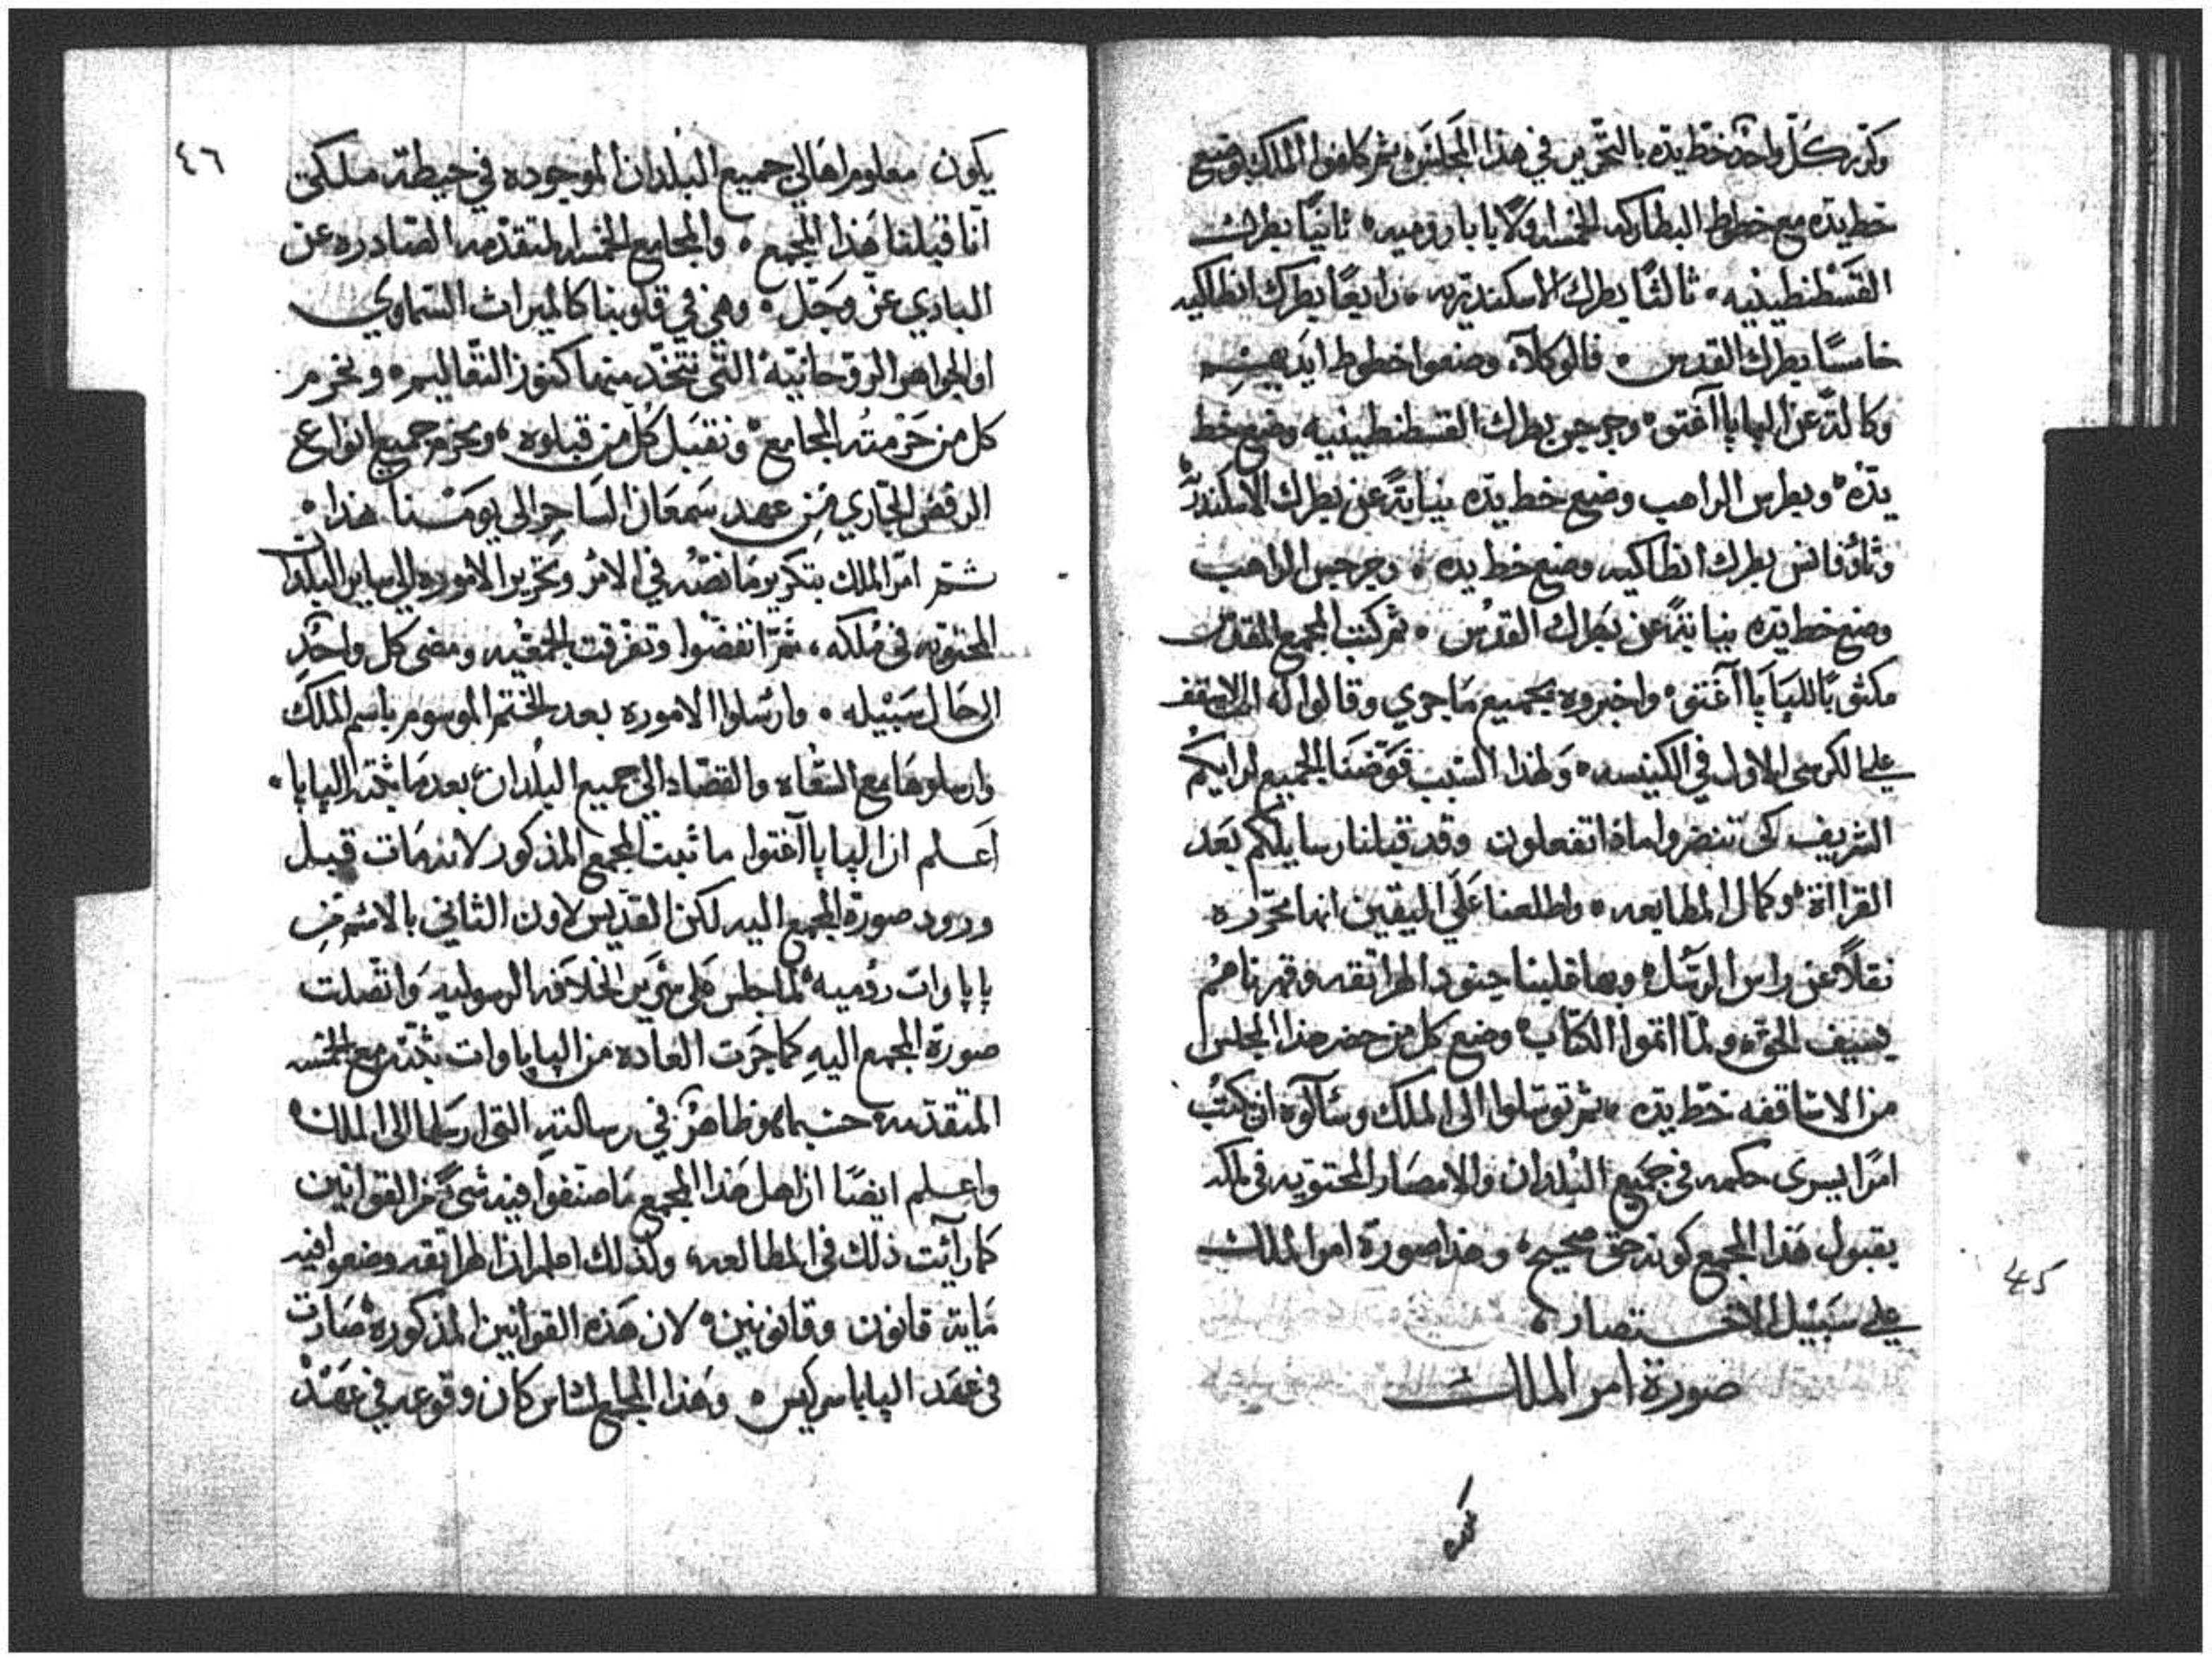 وكرر كل واحد خط يده بالتحرير في هذا المجلس ثم كلفوا الملك بوضع
خط يده مع خطوط البطاركه الخمسه اولًا بابا روميه ثانيًا بطرك
القسطنطينيه ثالثًا بطرك الاسكندريه رابعًا بطرك انطاكيه
خامسًا بطرك القدس فالوكلاء وضعوا خطوط ايديهم
وكالة عن البابا آغتو وجرجي بطرك القسطنطينيه وضع خط
يده وبطرس الراهب وضع خط يده نيابةً عن بطرك الاسكندريه
وثاوفانس بطرك انطاكيه وضع خط يده وجرجس الراهب
وضع خط يده نيابةً عن بطرك القدس ثم كتب المجمع المقدس
مكتوبًا للبابا آغتو واخبروه بجميع ما جري وقالوا له انك الاسقف
علي الكرسي الاول في الكنيسه ولهذا السبب فوضنا الجميع لرايكم
الشريف كي تنضروا ماذا تفعلون وقد قبلنا رسايلكم بعد
القرااة وكمال المطالعه واطلعنا علي اليقين انها محرره
نقلًا عن راس الرسل وبها قلبنا جنود الهراتقه وقهرناهم
بسيف الحق ولما اتموا الكتاب وضع كل من حضر هذا المجلس
من الاساقفه خط يده ثم توسلوا الى الملك وسألوه ان يكتب
امرًا يسري حكمه في جميع البلدان والامصار المحتويه في ملكه
بقبول هذا المجمع كونه حق صحيح وهذا صورة امر الملك
علي سبيل الاختصار
صورة امر الملك
45
٤٦
يكون معلوم اهالي جميع البلدان الموجوده في حيطة ملكي
انا قبلنا هذا المجمع والمجامع الخمسه المتقدمه الصادره عن
الباري عز وجل وهي في قلوبنا كالميراث السماوي
او الجواهر الروحانية التي نتخذ منها كنوز التعاليم ونحرم
كل من حرمته المجامع ونقبل كل من قبلوه ونحرم جميع انواع
الرفض الجاري من عهد سمعان الساحر الى يومنا هذا
ثم امر الملك بتكرير ما نصه في الامر وتحرير الاموره الى ساير البلدان
المحتويه في ملكه ثم انفضوا وتفرقت الجمعيه ومضى كل واحد
الى حال سبيله وارسلوا الاموره بعد الختم الموسوم باسم الملك
وارسلوها مع السعاه والقصاد الى جميع البلدان بعدما يثبتها البابا
اعلم ان البابا آغتوا ما ثبت المجمع المذكور لانه مات قبل
ورود صورة المجمع اليه لكن القديس لاون الثاني بالاسم من
باباوات روميه لما جلس على سرير الخلافه الرسوليه واتصلت
صورة المجمع اليه كما جرت العاده من الباباوات ثبته مع الخمسه
المتقدمه حسبما هو ظاهر في رسالته التي ارسلها الى الملك
واعلم ايضًا ان اهل هذا المجمع ما صنفوا فيه شيء من القوانين
كما رأيت ذلك في المطالعه ولذلك اعلم ان الهراتقه وضعوا فيه
ماية قانون وقانونين لان هذه القوانين المذكوره صارت
في عهد البابا سركيس وهذا المجمع السادس كان وقوعه في عهد